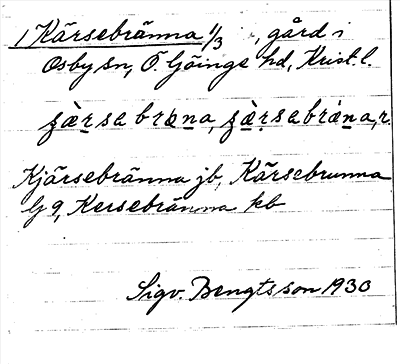 1 Kärsebränna 1/3, gård i
Osby sn, Ö. Göinge hd, Krist. l.
Kjärsebränna jb, Kärsebrunna
Gg, Kersebränna kb
Sigv. Bengtsson 1930